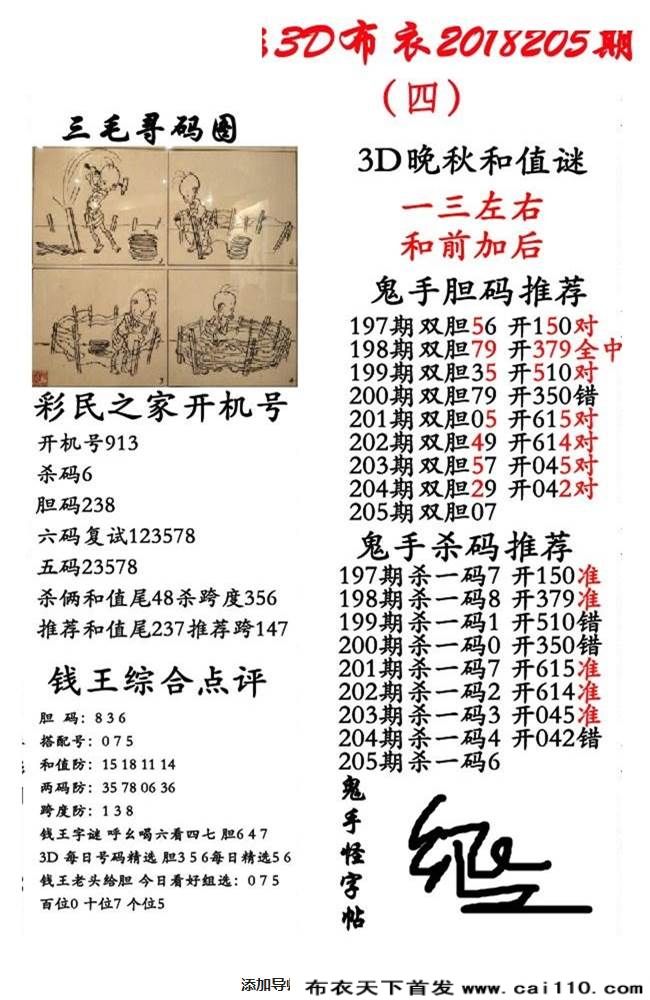 3D布衣2018205期
（四）
三毛寻码图
彩民之家开机号
开机号913
杀码6
胆码238
六码复试123578
五码23578
杀俩和值尾48杀跨度356
推荐和值尾237推荐跨147
钱王综合点评
胆 码：8 3 6
搭配号：0 7 5
和值防：15 18 11 14
两码防：35 78 06 36
跨度防：1 3 8
钱王字谜 呼幺喝六看四七 胆6 4 7
3D 每日号码精选 胆3 5 6每日精选5 6
钱王老头给胆 今日看好组选：0 7 5
百位0 十位7 个位5
3D晚秋和值谜
一三左右
和前加后
鬼手胆码推荐
197期 双胆56 开150对
198期 双胆79 开379全中
199期 双胆35 开510对
200期 双胆79 开350错
201期 双胆05 开615对
202期 双胆49 开614对
203期 双胆57 开045对
204期 双胆29 开042对
205期 双胆07
鬼手杀码推荐
197期 杀一码7 开150准
198期 杀一码8 开379准
199期 杀一码1 开510错
200期 杀一码0 开350错
201期 杀一码7 开615准
202期 杀一码2 开614准
203期 杀一码3 开045准
204期 杀一码4 开042错
205期 杀一码6
鬼手怪字帖
添加导
布衣天下首发 www.cai110.com